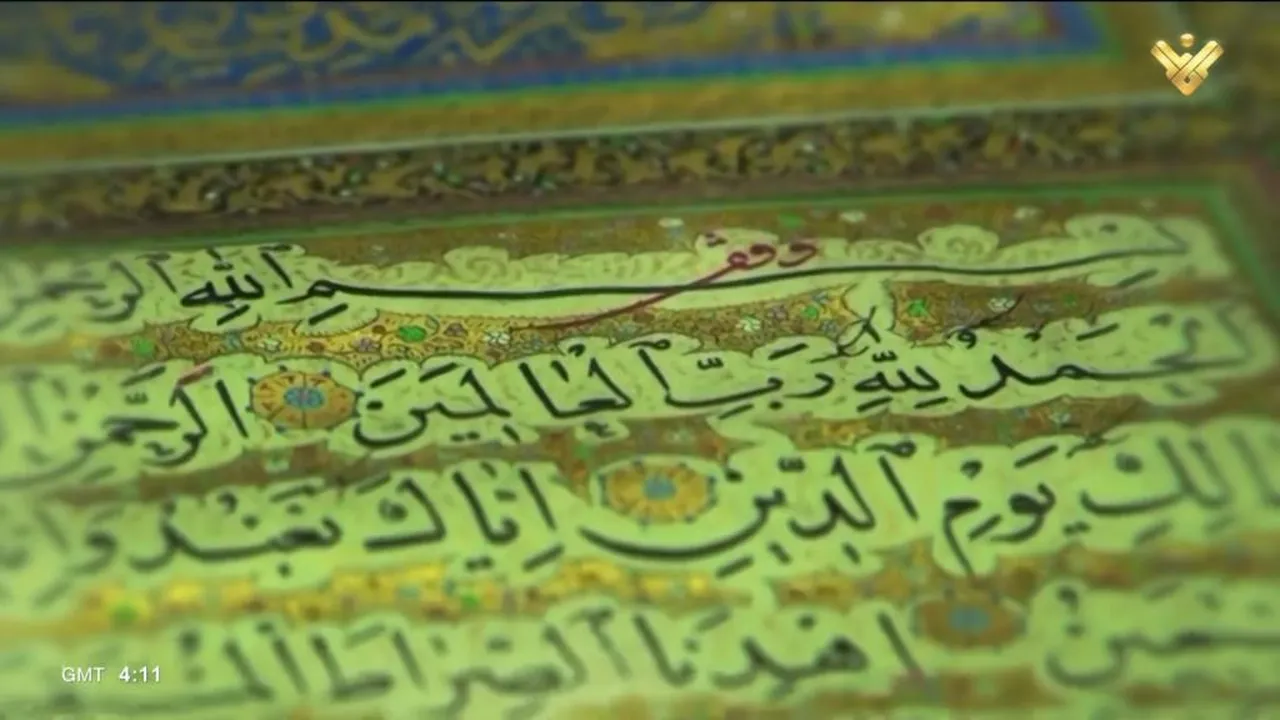 وقف
بسم الله الرحمن
الحمد لله رب العالمين الرحمن
لك يوم الدين إياك نعبد وإيا
ستعين اهدنا الصراط
GMT 4:11